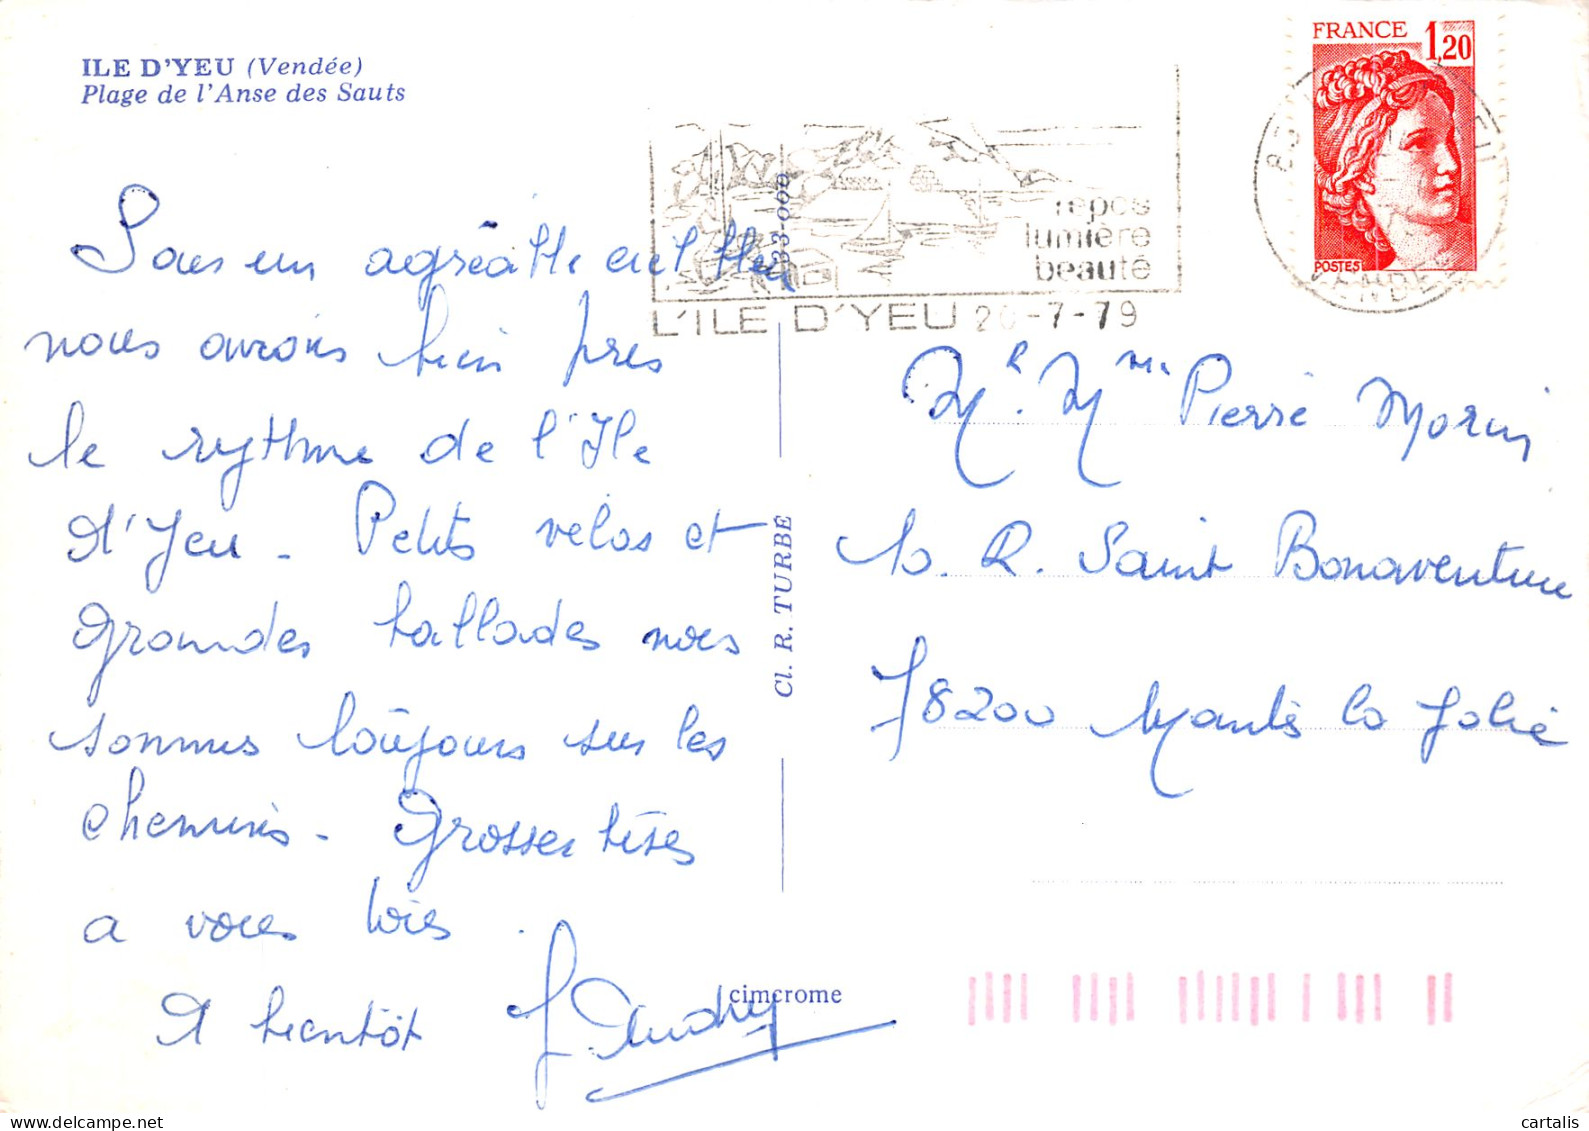 ILE D'YEU (Vendée)
Plage de l'Anse des Sauts
FRANCE 1,20
POSTES
repos
lumière
beauté
L'ILE D'YEU 20-7-79
Sous un agréable ciel bleu
nous avons bien pris
le rythme de l'Ile
d'Yeu - Petits vélos et
grandes ballades nous
sommes toujours sur les
chemins - Grosses bises
a vous trois .
A bientôt
Cl. R. TURBE
cimcrome
Mr. Mme Pierre Morin
10. R. Saint Bonaventure
78200 Mantes la Jolie
© cartalis
delcampe.net